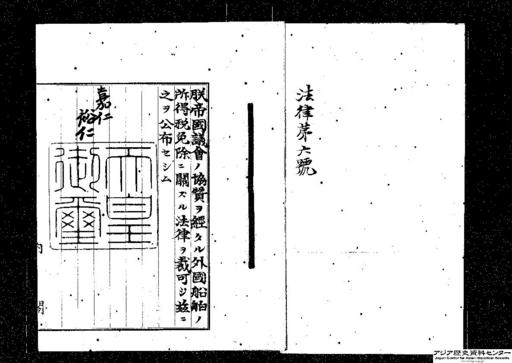 法律第六號
朕帝國議會ノ協贊ヲ經タル外國船舶ノ
所得稅免除ニ關スル法律ヲ裁可シ茲ニ
之ヲ公布セシム
嘉仁
裕仁
天皇
御璽
內閣
アジア歴史資料センター
Japan Center for Asian Historical Records